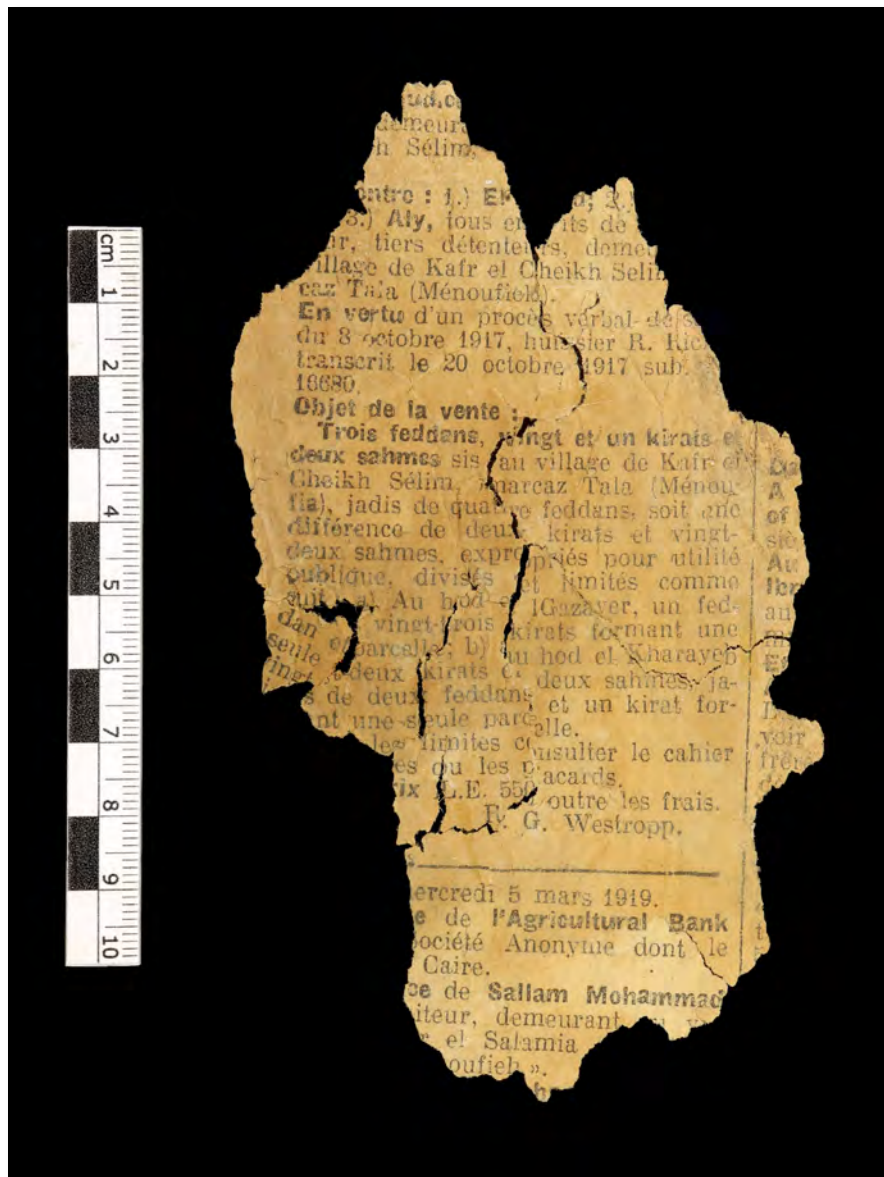 demeur
h Sélim,
ontre : 1.)
3.) Aly, tous de
tiers détenteurs,
village de Kafr el Cheikh Seli
caz Tala (Ménoufieh).
En vertu d'un procès verbal de
du 8 octobre 1917, huissier R.
transcrit le 20 octobre 1917 sub.
16680.
Objet de la vente :
Trois feddans, vingt et un kirats et
deux sahmes sis au village de Kafr el
Cheikh Sélim, marcaz Tala (Ménou-
fia), jadis de quatre feddans, soit une
différence de deux kirats et vingt-
deux sahmes, expropriés pour utilité
publique, divisés et limités comme
suit : a) Au hod el Gazayer, un fed-
dan vingt-trois kirats formant une
seule parcelle; b) au hod el Kharayeb
deux kirats et deux sahmes, ja-
s de deux feddans et un kirat for-
ant une seule parcelle.
les limites consulter le cahier
es ou les placards.
ix L.E. 550 outre les frais.
G. Westropp.
ercredi 5 mars 1919.
e de l'Agricultural Bank
ociété Anonyme dont le
Caire.
ce de Sallam Mohammad
iteur, demeurant
el Salamia
oufieh ».
A
of
Au
Ibr
au
voir